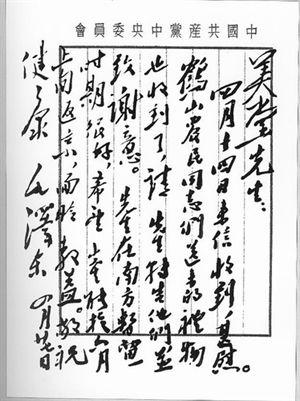 中國共產黨中央委員會
美堂先生：
四月十四日来信收到，甚慰。
鶴山農民同志們送来的禮物
也收到了，請先生轉告他們並
致謝意。先生在南方暫留
时期很好，希望能於六月
上旬返京，面聆教益。敬祝
健康 毛澤东 四月廿七日